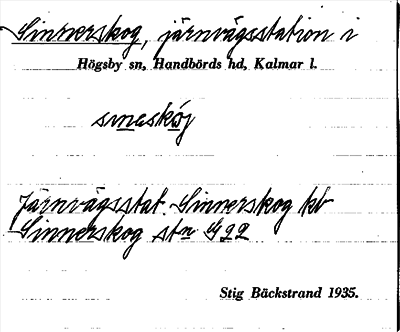 Sinnerskog, järnvägsstation i
Högsby sn, Handbörds hd, Kalmar l.
Järnvägsstat. Sinnerskog kb
Sinnerskog stn G22
Stig Bäckstrand 1935.